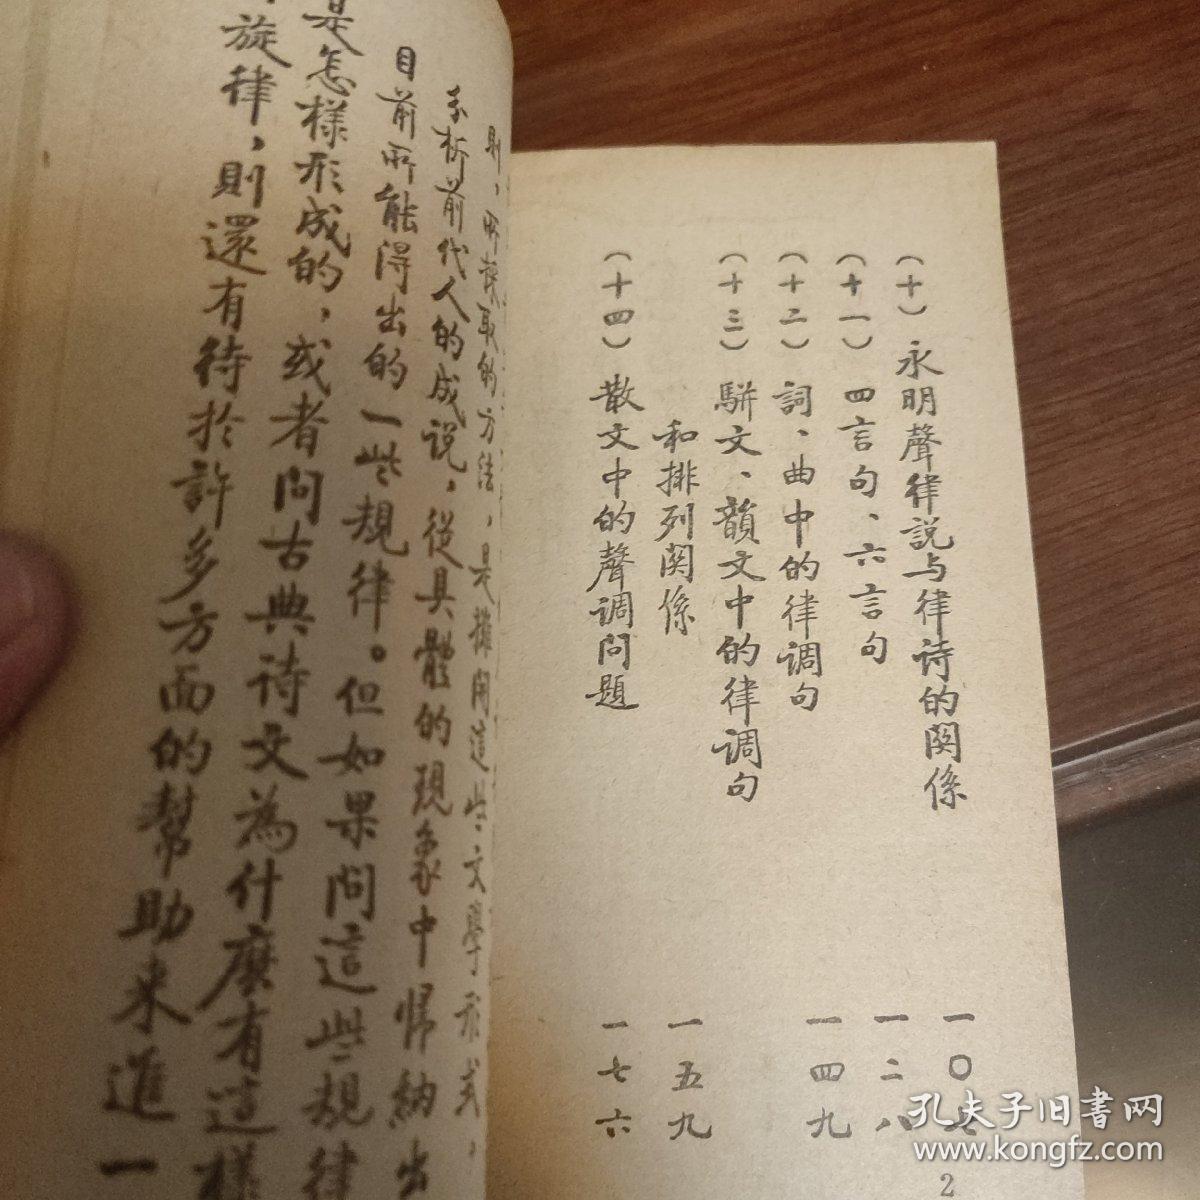 （十）永明聲律説与律诗的関係 一〇七
（十一）四言句、六言句 一二八
（十二）詞、曲中的律调句 一四九
（十三）駢文、韻文中的律调句
和排列関係 一五九
（十四）散文中的聲调问題 一七六
2
則，所採取的方法，是攤開這些文學形式，
分析前代人的成说，從具體的現象中歸納出
目前所能得出的一些規律。但如果問這些規律
是怎樣形成的，或者问古典诗文為什麼有這樣
旋律，則還有待於許多方面的幫助来進一
孔夫子旧書网
www.kongfz.com